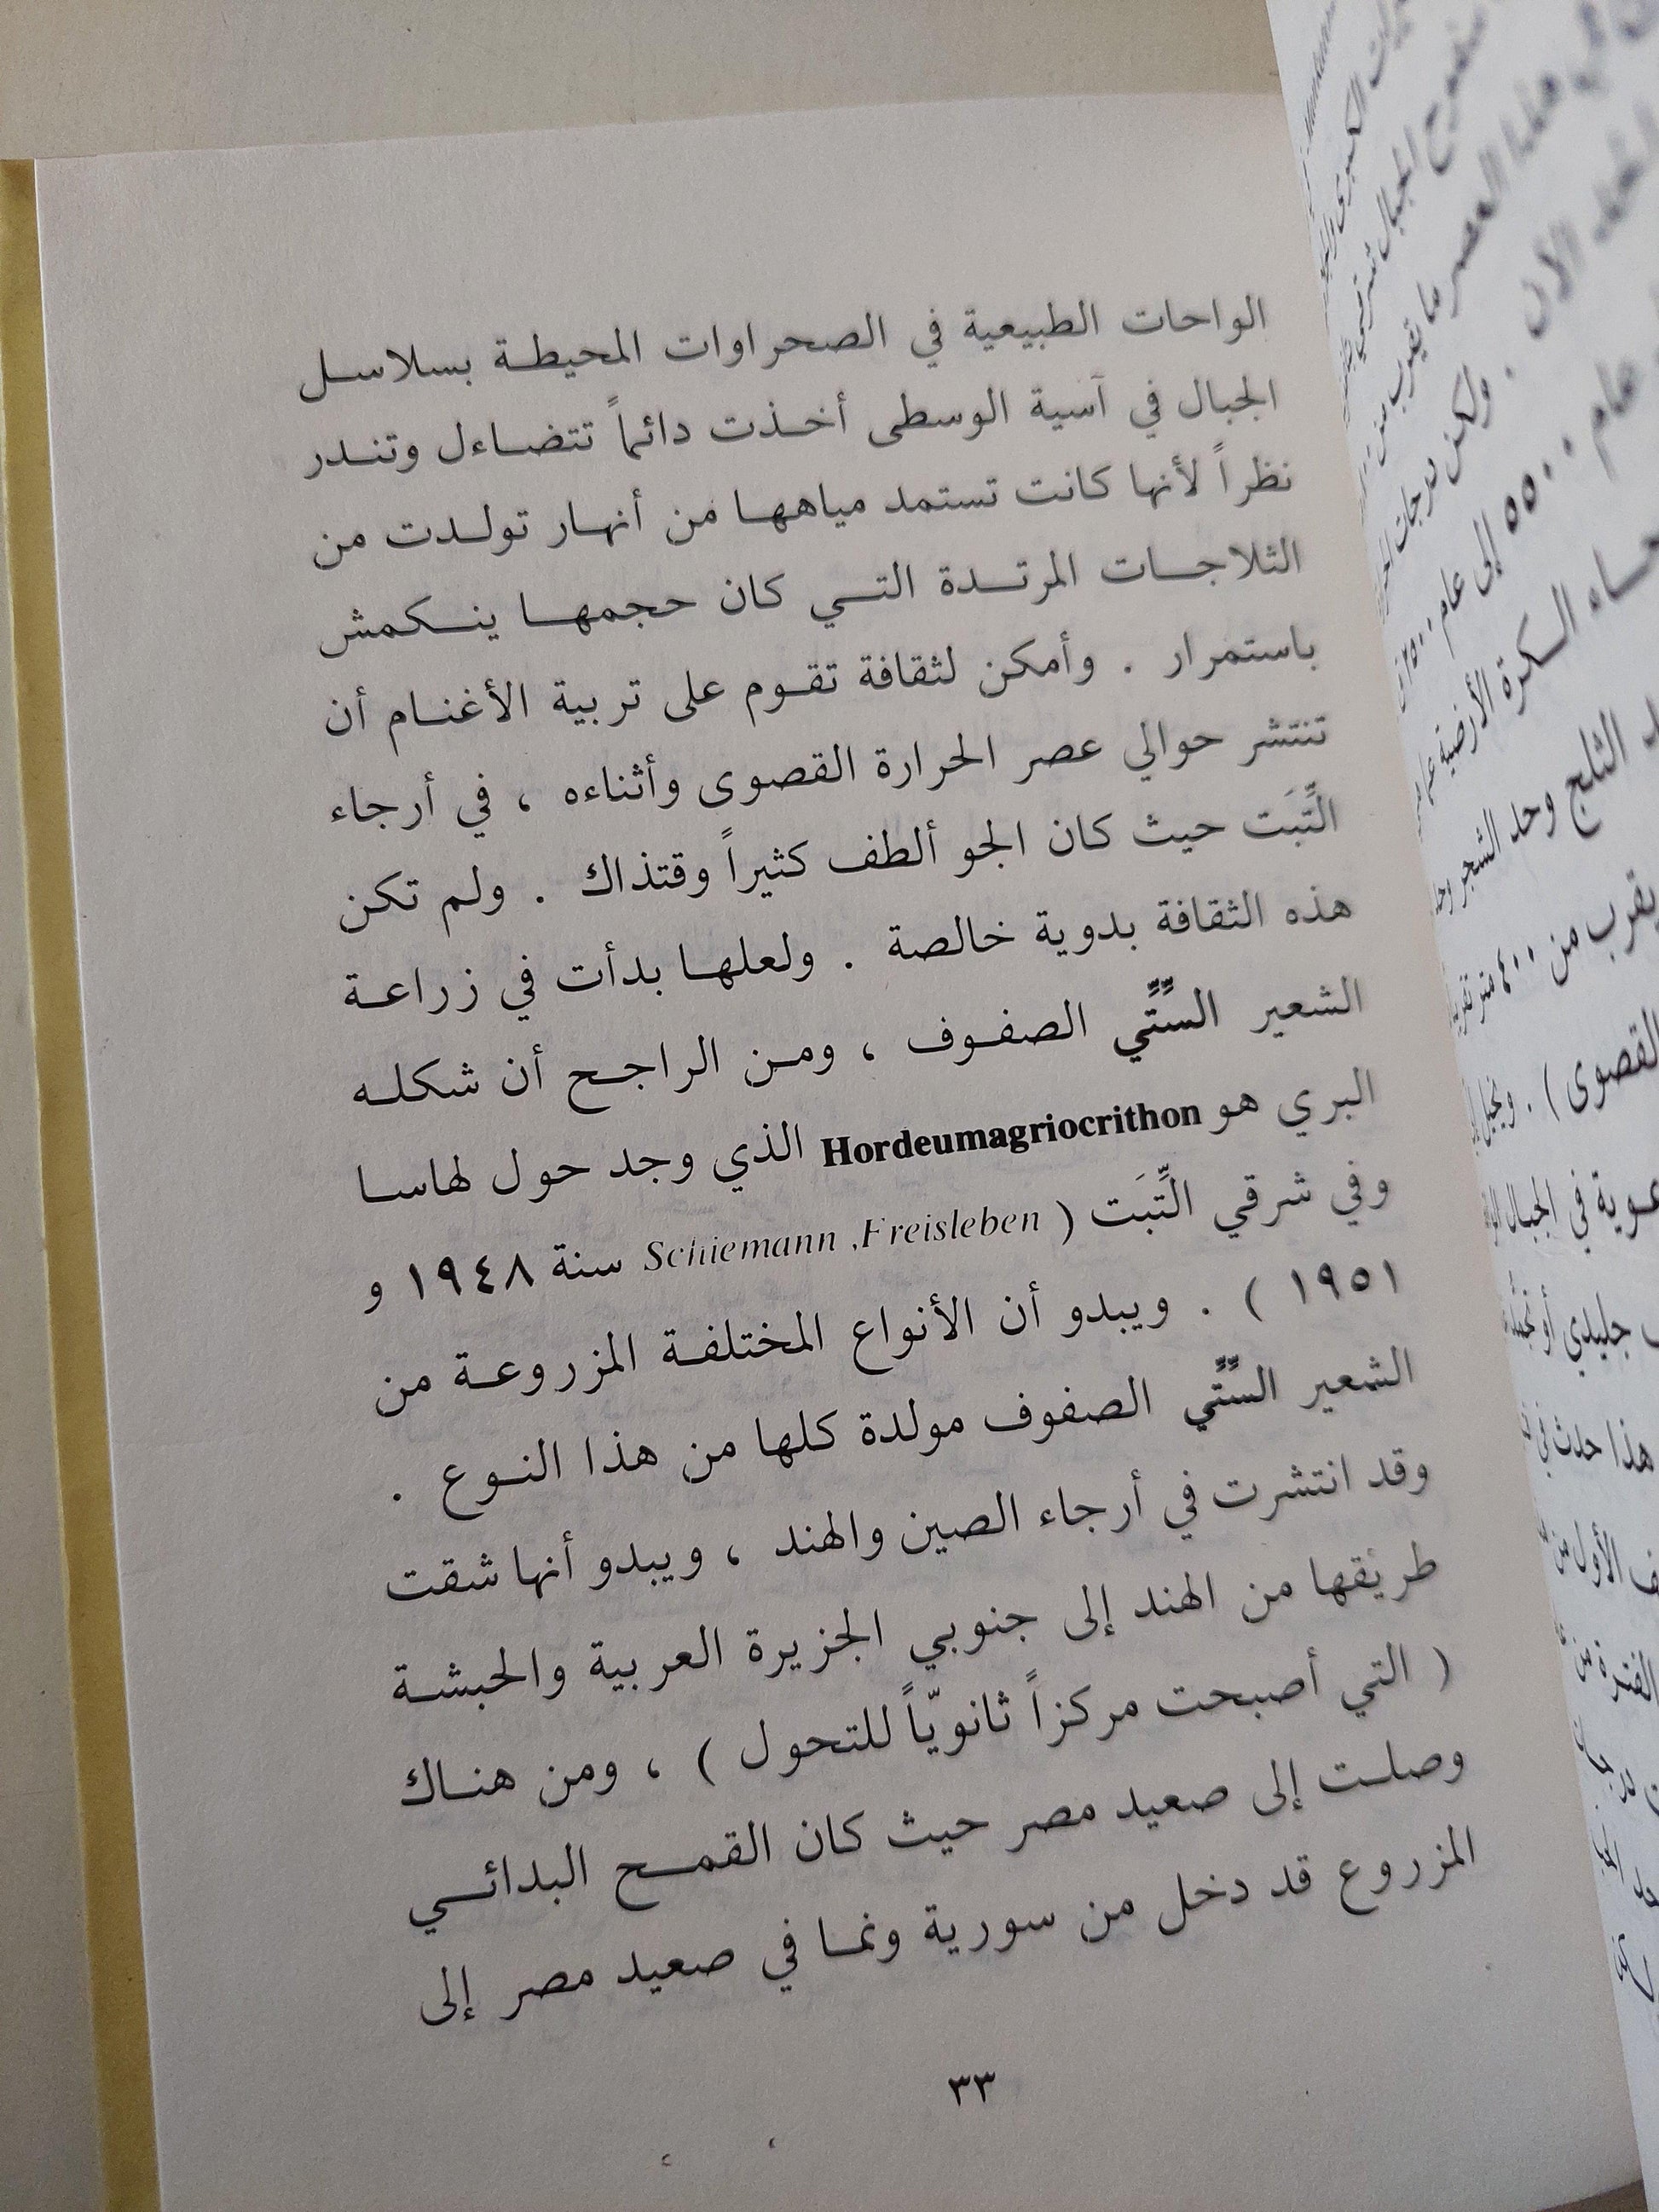 الواحات الطبيعية في الصحراوات المحيطة بسلاسل
الجبال في آسية الوسطى أخذت دائماً تتضاءل وتندر
نظراً لأنها كانت تستمد مياهها من أنهار تولدت من
الثلاجات المرتدة التي كان حجمها ينكمش
باستمرار . وأمكن لثقافة تقوم على تربية الأغنام أن
تنتشر حوالي عصر الحرارة القصوى وأثناءه ، في أرجاء
التِّبَت حيث كان الجو ألطف كثيراً وقتذاك . ولم تكن
هذه الثقافة بدوية خالصة . ولعلها بدأت في زراعة
الشعير السِّتِّي الصفوف ، ومن الراجح أن شكله
البري هو Hordeumagriocrithon الذي وجد حول لهاسا
وفي شرقي التِّبَت ( Schiemann ,Freisleben سنة ١٩٤٨ و
١٩٥١ ) . ويبدو أن الأنواع المختلفة المزروعة من
الشعير السِّتِّي الصفوف مولدة كلها من هذا النوع .
وقد انتشرت في أرجاء الصين والهند ، ويبدو أنها شقت
طريقها من الهند إلى جنوبي الجزيرة العربية والحبشة
( التي أصبحت مركزاً ثانويّاً للتحول ) ، ومن هناك
وصلت إلى صعيد مصر حيث كان القمح البدائي
المزروع قد دخل من سورية ونما في صعيد مصر إلى
٣٣
سفوح الجبال
هذا العصر ما يقرب من
الآن . ولكن درجات
عام ٥٥٠٠ إلى عام ٢٥٠٠
الكرة الأرضية
الثلج وحد الشجر
يقرب من ٤٠٠ متر
القصوى ) .
في الجبال
جليدي أو
هذا حدث في
الأول من
الفترة من